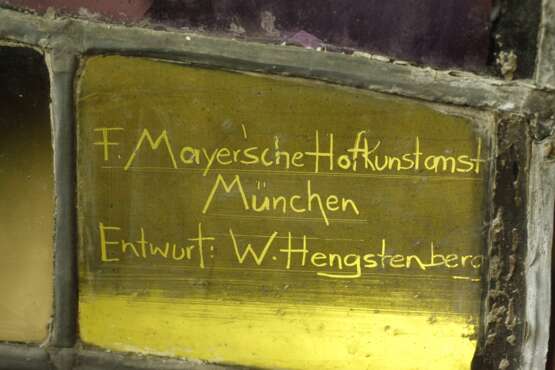 F. Mayer'sche Hofkunstanst
München
Entwurf: W. Hengstenberg